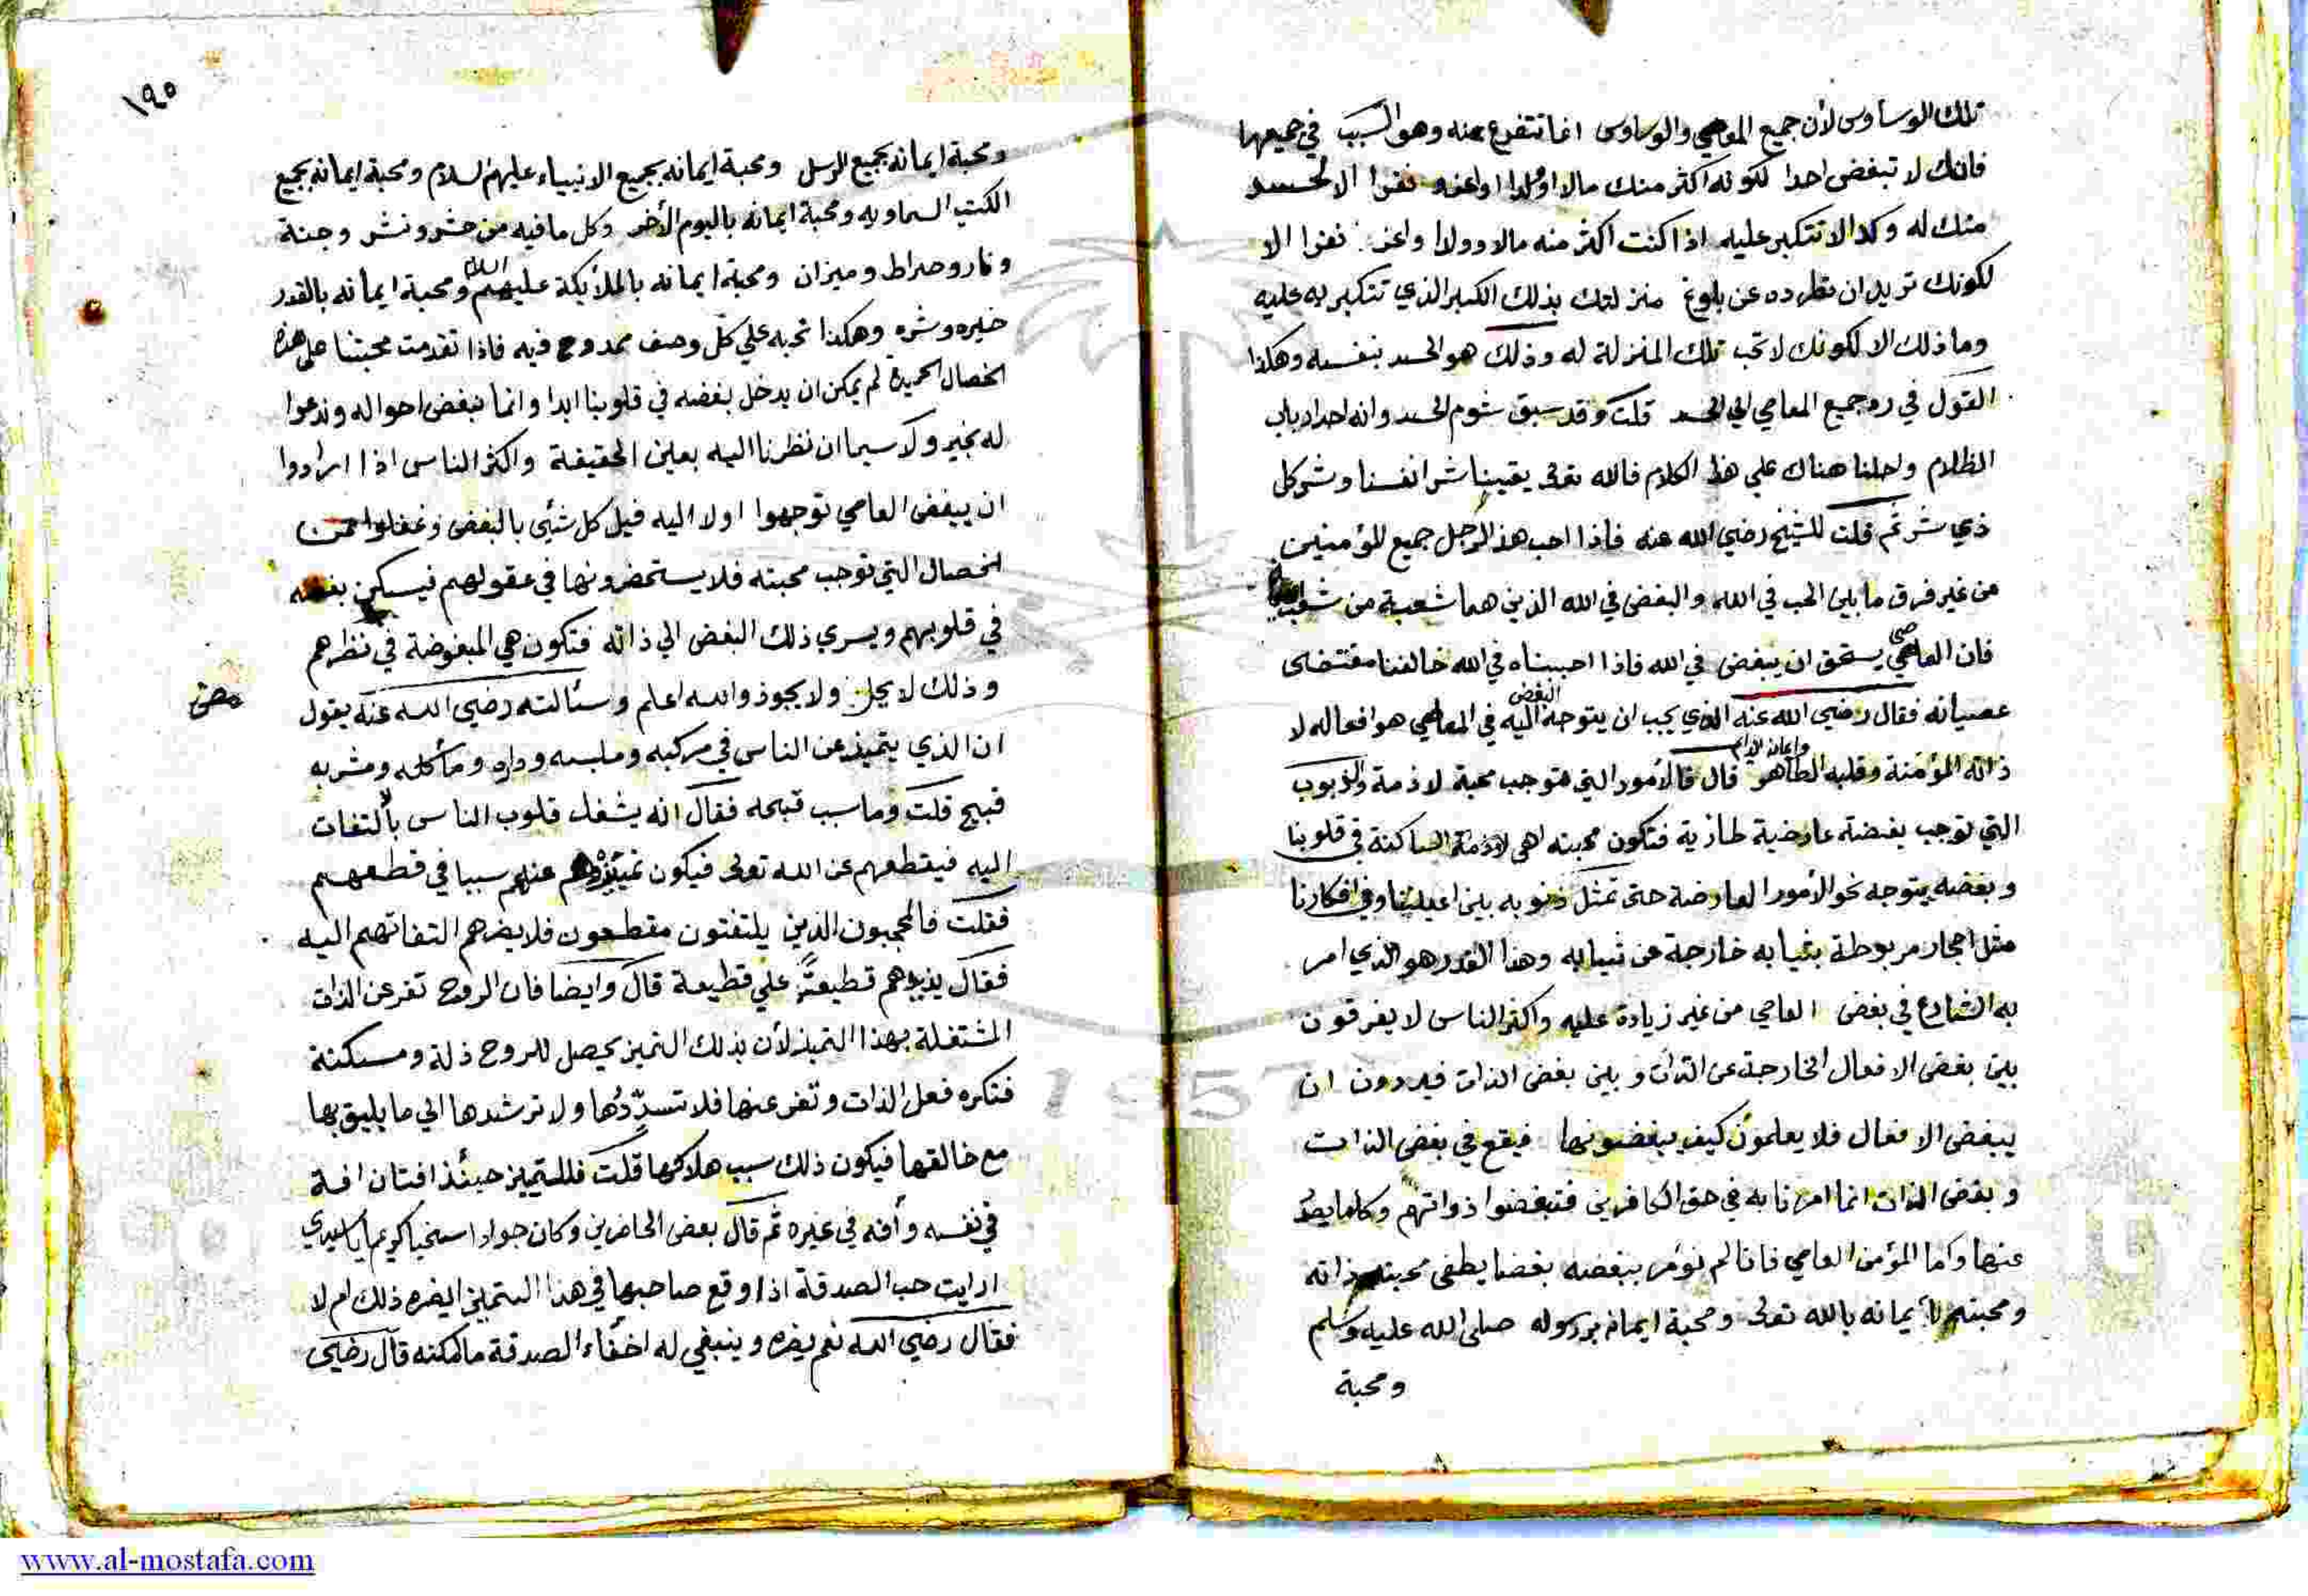 تلك الوساوس لأن جميع المعاصي والوساوس انما تتفرع عنه وهو السبب في جميعها
فانك لا تبغض احدا لكونه اكثر منك مالا اوولدا اواعز نفرا الا لحسد
منك له وكذا لا تتكبر عليه اذا كنت اكثر منه مالا وولدا واعز نفرا الا
لكونك تريد ان تطرده عن بلوغ منزلتك بذلك الكبر الذي تتكبر به عليه
وما ذلك الا لكونك لا تحب تلك المنزلة له وذلك هو الحسد بنفسه وهكذا
القول في رد جميع المعاصي الي الحسد قلت وقد سبق شوم الحسد وانه احد ابواب
الظلام واحلنا هناك علي هذا الكلام فالله تعالى يقينا شر انفسنا وشر كل
ذي شر ثم قلت للشيخ رضي الله عنه فاذا احب هذا الرجل جميع المؤمنين
من غير فرق ما بين الحب في الله والبغض في الله الذين هما شعبة من شعب الايمان
فان العاصي يستحق ان يبغض في الله فاذا احببناه في الله خالفنا مقتضى
عصيانه فقال رضي الله عنه الذي يجب ان يتوجه اليه البغض في المعاصي هو افعاله لا
ذاته المؤمنة وقلبه الطاهر وايمانه الدائم قال فالأمور التي توجب محبة لازمة والذنوب
التي توجب بغضته عارضية طارية فتكون محبته هي لازمة الساكنة في قلوبنا
وبغضه يتوجه نحو الأمور العارضة حتى تمثل ذنوبه بين اعيننا وفي افكارنا
مثل احجار مربوطة بثيابه خارجة عن ثيابه وهذا القدر هو الذي امر
به الشارع في بغض العاصي من غير زيادة عليه واكثر الناس لا يفرقون
بين بغض الافعال الخارجة عن الذات وبين بغض الذات فيريدون ان
يبغض الافعال فلا يعلمون كيف يبغضونها فيقع في بغض الذات
وبغض الذات انما امرنا به في حق الكافرين فتبغضوا ذواتهم وكلما يصدر
عنها واما المؤمن العاصي فانا لم نؤمر ببغضه بغضا يطفى محبة ذاته
ومحبة ايمانه بالله تعالى ومحبة ايمانه برسوله صلى الله عليه وسلم
ومحبة
١٩٥
ومحبة ايمانه بجميع الرسل ومحبة ايمانه بجميع الانبياء عليهم السلام ومحبة ايمانه بجميع
الكتب السماويه ومحبة ايمانه باليوم الأخر وكل ما فيه من حشر ونشر وجنة
ونار وصراط وميزان ومحبة ايمانه بالملأيكة عليهم السلام ومحبة ايمانه بالقدر
خيره وشره وهكذا نحبه علي كل وصف ممدوح فيه فاذا تقدمت محبتنا على هذه
الخصال الحميدة لم يمكن ان يدخل بغضه في قلوبنا ابدا وانما نبغض احواله وندعوا
له بخير ولا سيما ان نظرنا اليه بعين الحقيقة واكثر الناس اذا ارادوا
ان يبغض العاصي توجهوا اولا اليه قبل كل شئي بالبغض وغفلوا عن
الخصال التي توجب محبته فلا يستحضرونها في عقولهم فيسكن بغضه
في قلوبهم ويسري ذلك البغض الي ذاته فتكون هي المبغوضة في نظرهم
وذلك لا يحل ولا يجوز والله اعلم وسئالته رضي الله عنه يقول
ان الذي يتميز عن الناس في مركبه وملبسه وداره ومأكله ومشربه
قبيح قلت وما سبب قبحه فقال انه يشغل قلوب الناس بالتفات
اليه فيقطعهم عن الله تعالى فيكون تميزه عنهم سببا في قطعهم
فقلت فالمحجوبون الذين يلتفتون مقطعون فلا يضرهم التفاتهم اليه
فقال يزيدهم قطيعة علي قطيعة قال وايضا فان الروح تفر عن الذات
المشتغلة بهذا التميز لأن بذلك التميز يحصل للروح ذلة ومسكنة
فتكره فعل الذات وتفر عنها فلا تسدّدُها ولا ترشدها الي ما يليق بها
مع خالقها فيكون ذلك سبب هلاكها قلت فللتميز حينئذ افتان افة
في نفسه وأفه في غيره ثم قال بعض الحاضرين وكان جوادا سخيا كريما يا سيدي
ارايت حب الصدقة اذا وقع صاحبها في هذا التميز ايضره ذلك ام لا
فقال رضي الله نعم يضره وينبغي له اخفاء الصدقة ما امكنه قال رضي
www.al-mostafa.com